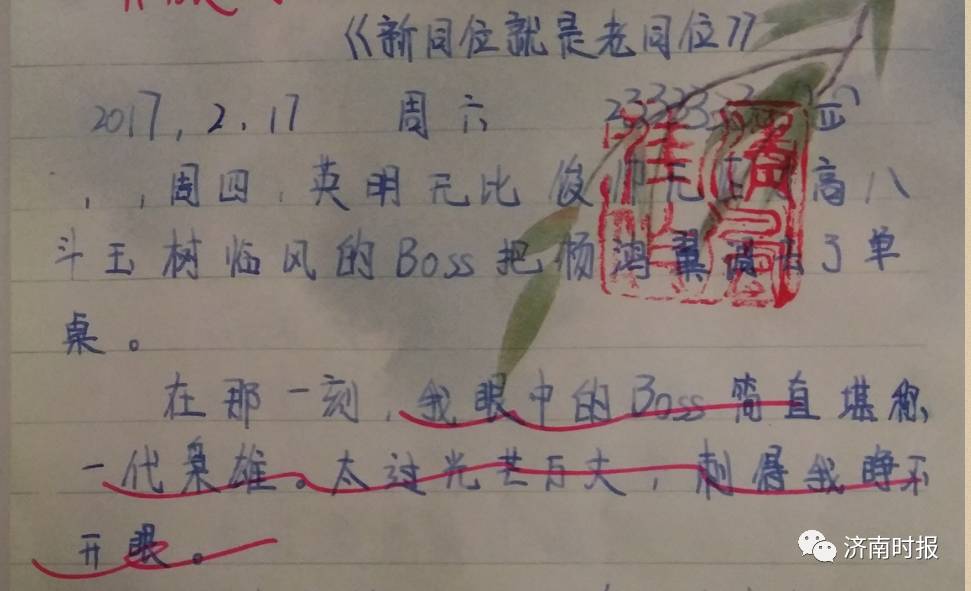 《新同位就是老同位》
2017,2.17 周六 23333
周四,英明无比俊帅无 高八
斗玉树临风的Boss把杨鸿翼调 了单
桌。
在那一刻,我眼中的Boss简直堪称
一代枭雄。太过光芒万丈,刺得我睁不
开眼。
济南时报